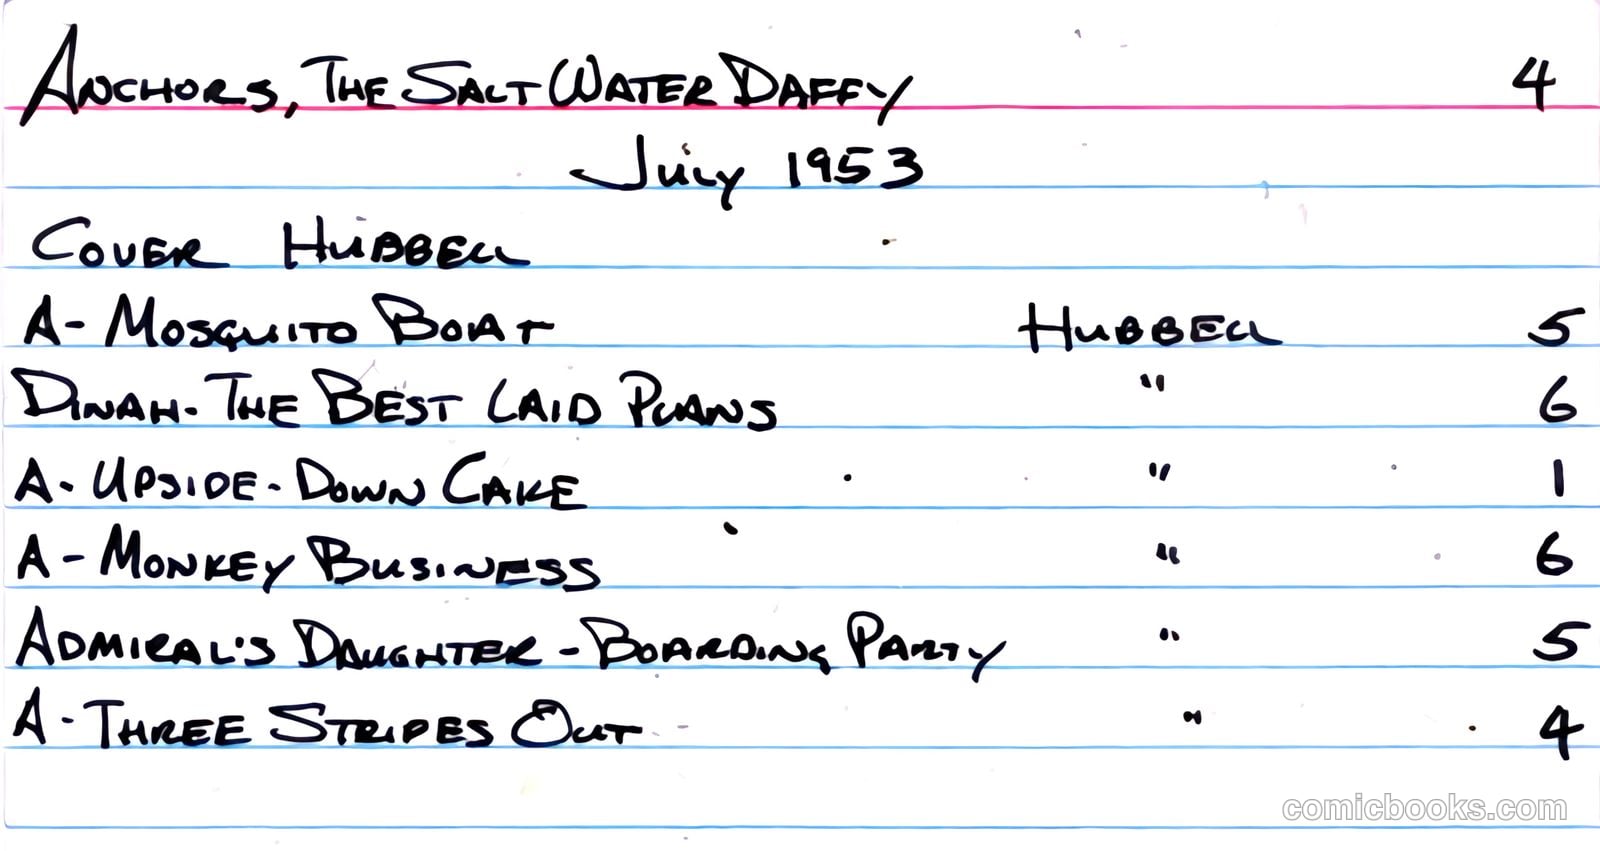 ANCHORS, THE SALT WATER DAFFY 4
JULY 1953
COVER HUBBELL
A- MOSQUITO BOAT HUBBELL 5
DINAH- THE BEST LAID PLANS " 6
A- UPSIDE-DOWN CAKE " 1
A- MONKEY BUSINESS " 6
ADMIRAL'S DAUGHTER - BOARDING PARTY " 5
A- THREE STRIPES OUT " 4
comicbooks.com